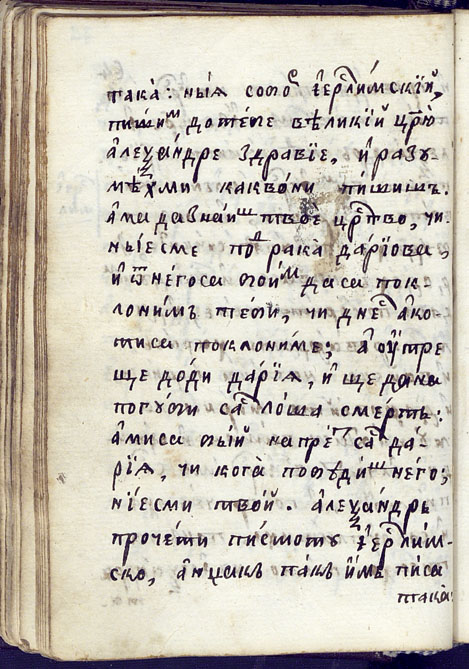 така̀: ныѧ сото҆ с҃ і҆ерⷭ҇лимскїй,
пиши́мⷨ дотебе вѣликїй цр҃ю
а҆леѯа́ндре здравїе, и҆ разꙋ
мѣхми каквѡни пи́шишъ.
а҆ма да знаиⷲ҇ твое црⷭ҇тво, чи
ныѐсме поⷣ рака̀ да́рїова,
и҆ ѿ него са боиⷨ да са пок-
лонимъ тебѣ, чи днеⷭ҇ а҆ко
ти са поклониме; а҆ ѹтре
ще до́ди да́рїѧ, и҆ ще да на
погꙋби саⷭ҇ лоша смерть:
а҆ми са бїй напреⷣ саⷭ҇ да́-
рїѧ, чи кога̀ побѣдиⷲ҇ него;
нїе сми твой. а҆леѯа́ндръ
прочети писмото і҆ерⷭ҇лим-
ско, а҆нџакъ такъ и҆мъ писа
така̀: